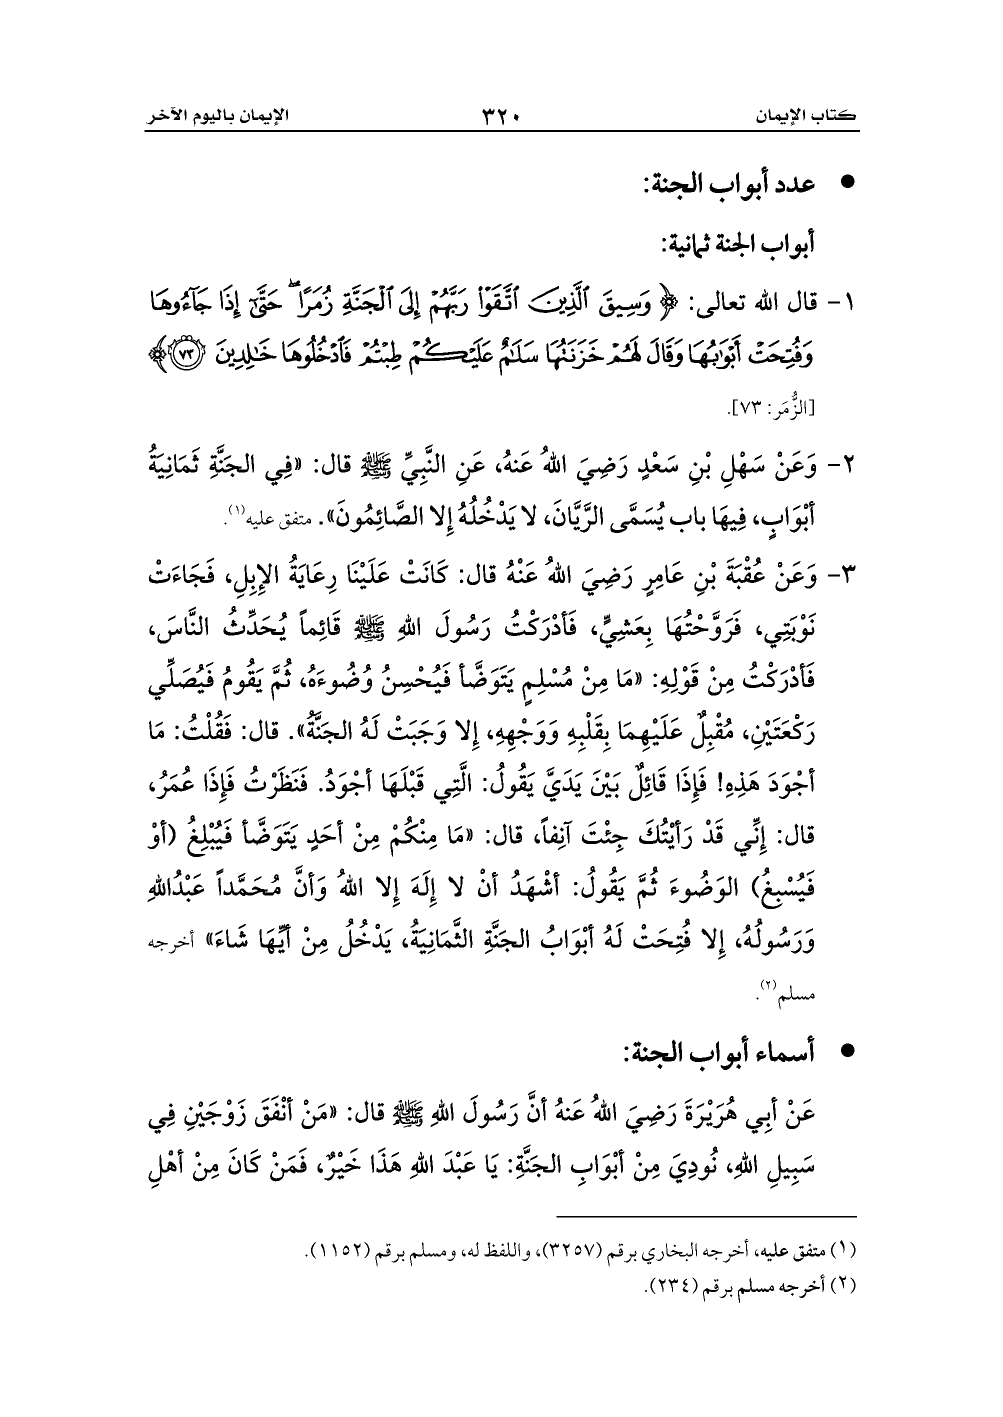 كتاب الإيمان ٣٢٠ الإيمان باليوم الآخر
● عدد أبواب الجنة:
أبواب الجنة ثمانية:
١- قال الله تعالى: ﴿ وَسِيقَ ٱلَّذِينَ ٱتَّقَوْاْ رَبَّهُمْ إِلَى ٱلْجَنَّةِ زُمَرًاۖ حَتَّىٰٓ إِذَا جَآءُوهَا
وَفُتِحَتْ أَبْوَٰبُهَا وَقَالَ لَهُمْ خَزَنَتُهَا سَلَٰمٌ عَلَيْكُمْ طِبْتُمْ فَٱدْخُلُوهَا خَٰلِدِينَ ٧٣﴾
[الزُّمَر: ٧٣].
٢- وَعَنْ سَهْلِ بْنِ سَعْدٍ رَضِيَ اللهُ عَنهُ، عَنِ النَّبِيِّ ﷺ قال: «فِي الجَنَّةِ ثَمَانِيَةُ
أبْوَابٍ، فِيهَا باب يُسَمَّى الرَّيَّانَ، لا يَدْخُلُهُ إلا الصَّائِمُونَ». متفق عليه(١).
٣- وَعَنْ عُقْبَةَ بْنِ عَامِرٍ رَضِيَ اللهُ عَنْهُ قال: كَانَتْ عَلَيْنَا رِعَايَةُ الإبِلِ، فَجَاءَتْ
نَوْبَتِي، فَرَوَّحْتُهَا بِعَشِيٍّ، فَأدْرَكْتُ رَسُولَ اللهِ ﷺ قَائِماً يُحَدِّثُ النَّاسَ،
فَأدْرَكْتُ مِنْ قَوْلِهِ: «مَا مِنْ مُسْلِمٍ يَتَوَضَّأ فَيُحْسِنُ وُضُوءَهُ، ثُمَّ يَقُومُ فَيُصَلِّي
رَكْعَتَيْنِ، مُقْبِلٌ عَلَيْهِمَا بِقَلْبِهِ وَوَجْهِهِ، إلا وَجَبَتْ لَهُ الجَنَّةُ». قال: فَقُلْتُ: مَا
أجْوَدَ هَذِهِ! فَإذَا قَائِلٌ بَيْنَ يَدَيَّ يَقُولُ: الَّتِي قَبْلَهَا أجْوَدُ. فَنَظَرْتُ فَإذَا عُمَرُ،
قال: إنِّي قَدْ رَأيْتُكَ جِئْتَ آنِفاً، قال: «مَا مِنْكُمْ مِنْ أحَدٍ يَتَوَضَّأ فَيُبْلِغُ (أوْ
فَيُسْبِغُ) الوَضُوءَ ثُمَّ يَقُولُ: أشْهَدُ أنْ لا إلَهَ إلا اللهُ وَأنَّ مُحَمَّداً عَبْدُاللهِ
وَرَسُولُهُ، إلا فُتِحَتْ لَهُ أبْوَابُ الجَنَّةِ الثَّمَانِيَةُ، يَدْخُلُ مِنْ أيِّهَا شَاءَ» أخرجه
مسلم(٢).
● أسماء أبواب الجنة:
عَنْ أبِي هُرَيْرَةَ رَضِيَ اللهُ عَنهُ أنَّ رَسُولَ اللهِ ﷺ قال: «مَنْ أنْفَقَ زَوْجَيْنِ فِي
سَبِيلِ اللهِ، نُودِيَ مِنْ أبْوَابِ الجَنَّةِ: يَا عَبْدَ اللهِ هَذَا خَيْرٌ، فَمَنْ كَانَ مِنْ أهْلِ
(١) متفق عليه، أخرجه البخاري برقم (٣٢٥٧)، واللفظ له، ومسلم برقم (١١٥٢).
(٢) أخرجه مسلم برقم (٢٣٤).